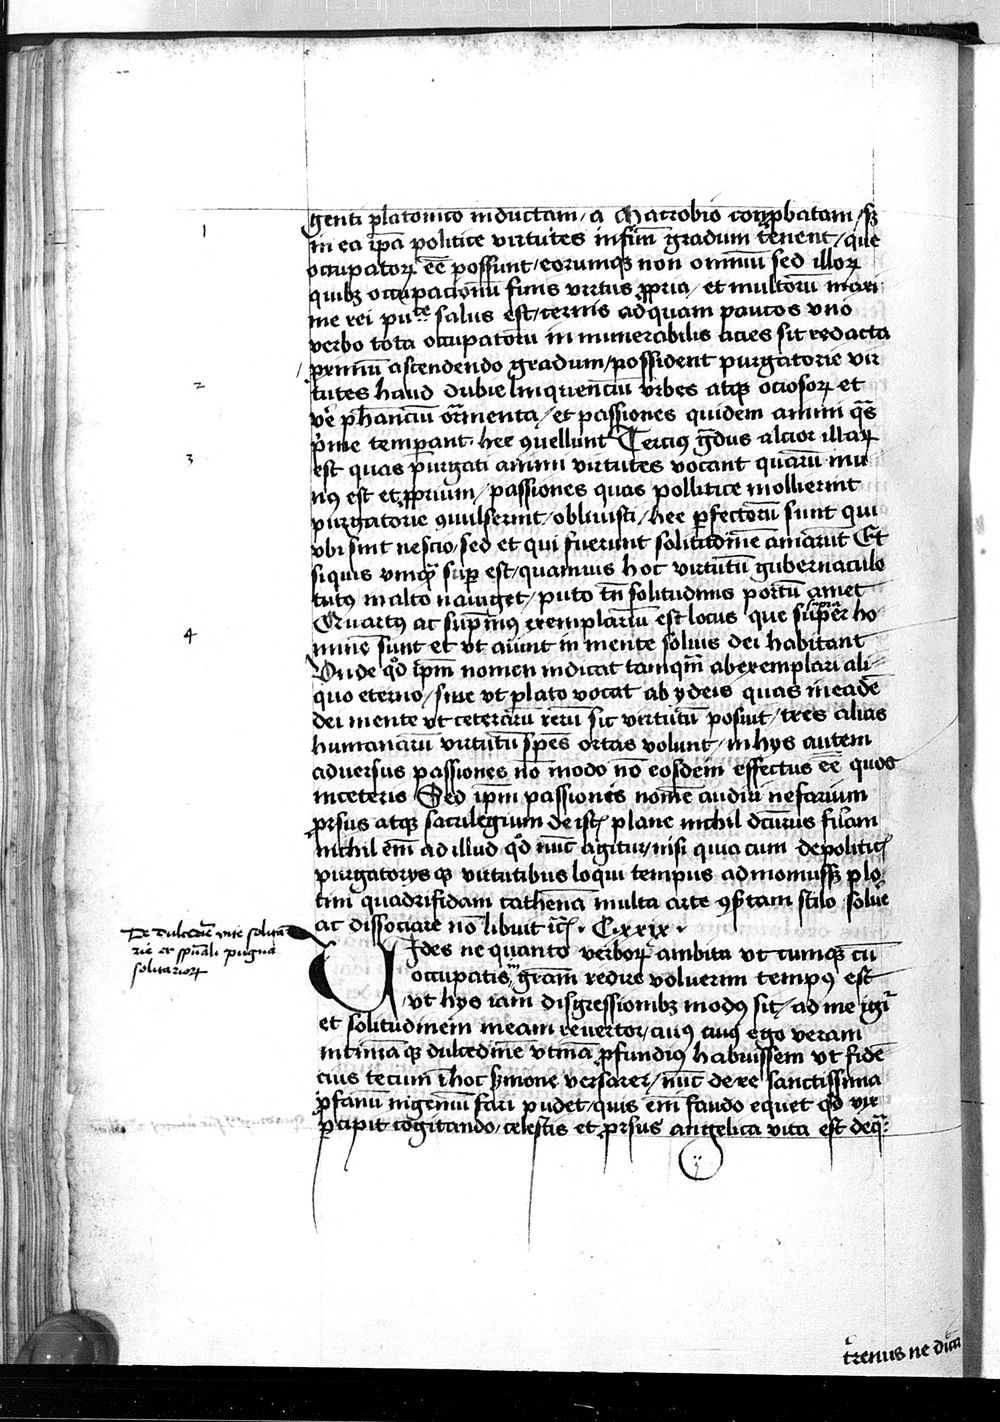 1
genti platonico inductam / a Macrobio conprbatam / sꝫ
in ea ip̄a politice virtutes infimū gradum tenent / que
occupatoꝝ eē possunt / eorumqꝫ non omniū sed illoꝝ
quibꝫ occupacionū finis virtus ꝓpria / et multorū maxi
me rei pu.ce salus est / terminus ad quam paucos vno
verbo tota occupatorū innumerabilis acies sit redacta
2
proximū ascendendo gradum / possident purgatorie vir
tutes haud dubie linquenciū vrbes atqꝫ ociosoꝝ et
vē phanciū ornamenta / et passiones quidem animi qs
pͥme temperant hec ꝯuellunt Tercius gdus alcior illaꝝ
3
est quas purgati animi virtutes vocant quarū mu
nꝰ est et ꝓprium / passiones quas pollitice mollierint
purgatorie ꝯuulserint / obliuisci / hee ꝑfectorū sunt qui
vbi sint nescio / sed et qui fuerunt solitudinē amarūt Et
siquis vnqꝫ suꝑ est / quamuis hoc virtutū gubernaculo
tutꝰ in alto nauiget / puto tn̄ solitudinis portū amet
4
Quartꝰ ac supremꝰ exemplariū est locus que supra ho
mine sunt et vt aiunt in mente solius dei habitant
Vnde qd̛ ipm̄ nomen indicat tamqm̄ ab exemplari ali-
quo eterno / siue vt plato vocat ab ydeis quas in eadē
dei mente vt ceterarū rerū sic virtutū posuit / tres alias
humanarū virtutū spēs ortas volunt / in hys autem
aduersus passiones nō modo nō eosdem effectus eē quos
in ceteris Sed ipm̄ passionis nomē audiri nefarium
prsus atqꝫ sacrilegium de istꝭ plane nichil dc̄urus fuam
nichil em̄ ad illud qd̛ nūc agitur / nisi quia cum de politicꝭ
purgatorys qꝫ virtutibus loqui tempus admonuissꝫ plo
tini quadrifidam cathenā multa arte ꝯsertam stilo solue
ac dissociare nō libuit · Cxxix ·
De dulcedīe vite solita
rie et spūali pugna
solitarioꝝ
Vides ne quanto verboꝝ ambitu vt cumqꝫ cū
occupatis in gram̄ redire voluerim tempꝰ est
vt hys iam disgressionibꝫ modꝰ sit / ad me igͥ
et solitudinem meam reuertor / cuiꝰ ego veram
intimā qꝫ dulcedinē vtinā ꝓfundiꝰ habuissem vt fidē
cius tecum ī hoc ẜmone versarer / nūc de re sanctissima
ꝓfanū ingeniū fari pudet / quis em̄ fando equet qd̛ vix
ꝑcipit cogitando / celestis et prsus angelica vita est deqꝫ
trenus ne dica